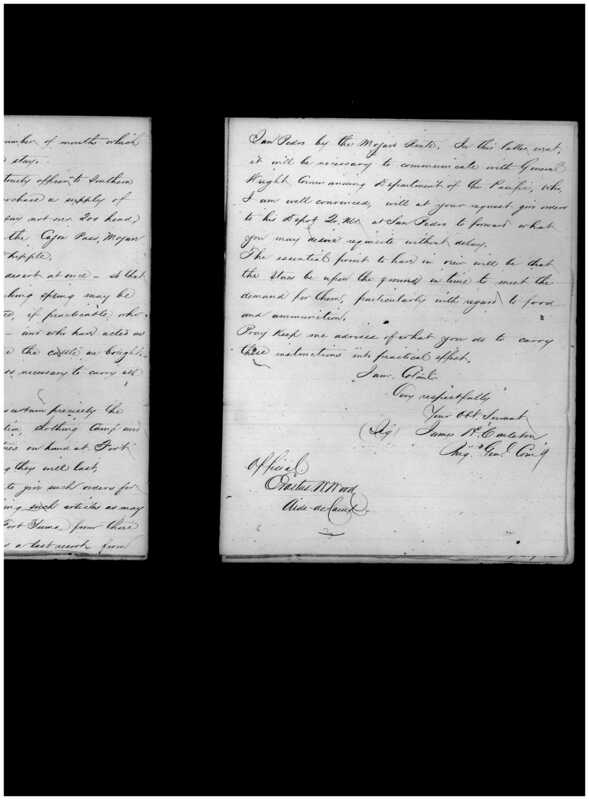 umber of months which
stay.
officer to Southern
purchase a supply of
not over 200 head,
the Cajon Pass, Mojave
Whipple.
desert at once – so that
spring may be
, if practicable, who
– and who has acted as
the cattle are bought.
as necessary to carry all
ascertain precisely the
clothing Camp and
on hand at Fort
they will last,
to give such orders for
ing such articles as may
Fort Yuma, from there
as a last resort from
San Pedro by the Mojave Route. In this latter event,
it will be necessary to communicate with General
Wright, Commanding Department of the Pacific, who,
I am well convinced, will at your request give orders
to his Depot Qr. Mr. at San Pedro to forward what
you may desire requisite without delay.
The essential point to have in view will be that
the Stores be upon the ground in time to meet the
demand for them, particularly with regard to food
and ammunition.
Pray keep me advised of what you do to carry
these instructions into practical effect.
I am, Colonel
Very respectfully
Your Obt. Servant
James H. Carleton
Brig. Genl. Com'g
Official
Erastus W. Wood
Aide-de-Camp.